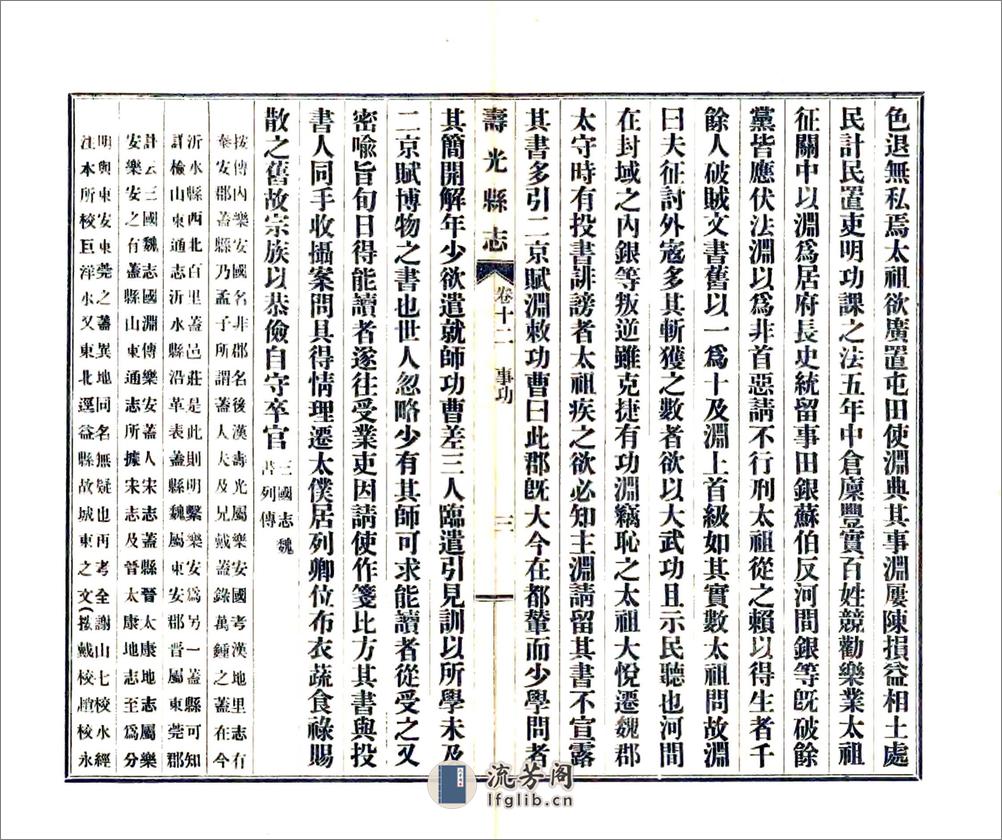 色退無私焉太祖欲廣置屯田使淵典其事淵屢陳損益相土處
民計民置吏明功課之法五年中倉廩豐實百姓競勸樂業太祖
征關中以淵爲居府長史統留事田銀蘇伯反河間銀等旣破餘
黨皆應伏法淵以爲非首惡請不行刑太祖從之賴以得生者千
餘人破賊文書舊以一爲十及淵上首級如其實數太祖問故淵
曰夫征討外寇多其斬獲之數者欲以大武功且示民聽也河間
在封域之內銀等叛逆雖克捷有功淵竊恥之太祖大悅遷魏郡
太守時有投書誹謗者太祖疾之欲必知主淵請留其書不宣露
其書多引二京賦淵敕功曹曰此郡旣大今在都輦而少學問者
壽光縣志 卷十二 事功 三
其簡開解年少欲遣就師功曹差三人臨遣引見訓以所學未及
二京賦博物之書也世人忽略少有其師可求能讀者從受之又
密喻旨旬日得能讀者遂往受業吏因請使作箋比方其書與投
書人同手收攝案問具得情理遷太僕居列卿位布衣蔬食祿賜
散之舊故宗族以恭儉自守卒官
三國志魏
書列傳
按傳內樂安國名非郡名後漢壽光屬樂安國考漢地里志有
泰安郡蓋縣乃孟子所謂蓋人夫及兄戴蓋錄萬鍾之蓋在今
沂水縣西北百里蓋邑莊是此則明繫樂安爲另一蓋縣可知
詳檢山東通志沂水縣沿革表蓋縣魏屬東安郡晉屬東莞郡
計云三國魏志國淵傳樂安蓋人宋志蓋縣晉太康地志屬樂
安樂安之有蓋縣山東通志所據宋志及晉太康地志至爲分
明與東安東莞之蓋異地同名無疑也再考全謝山七校水經
注本所校巨洋水又東北逕益縣故城東之文(載戴校趙校永
流芳阁
lfglib.cn